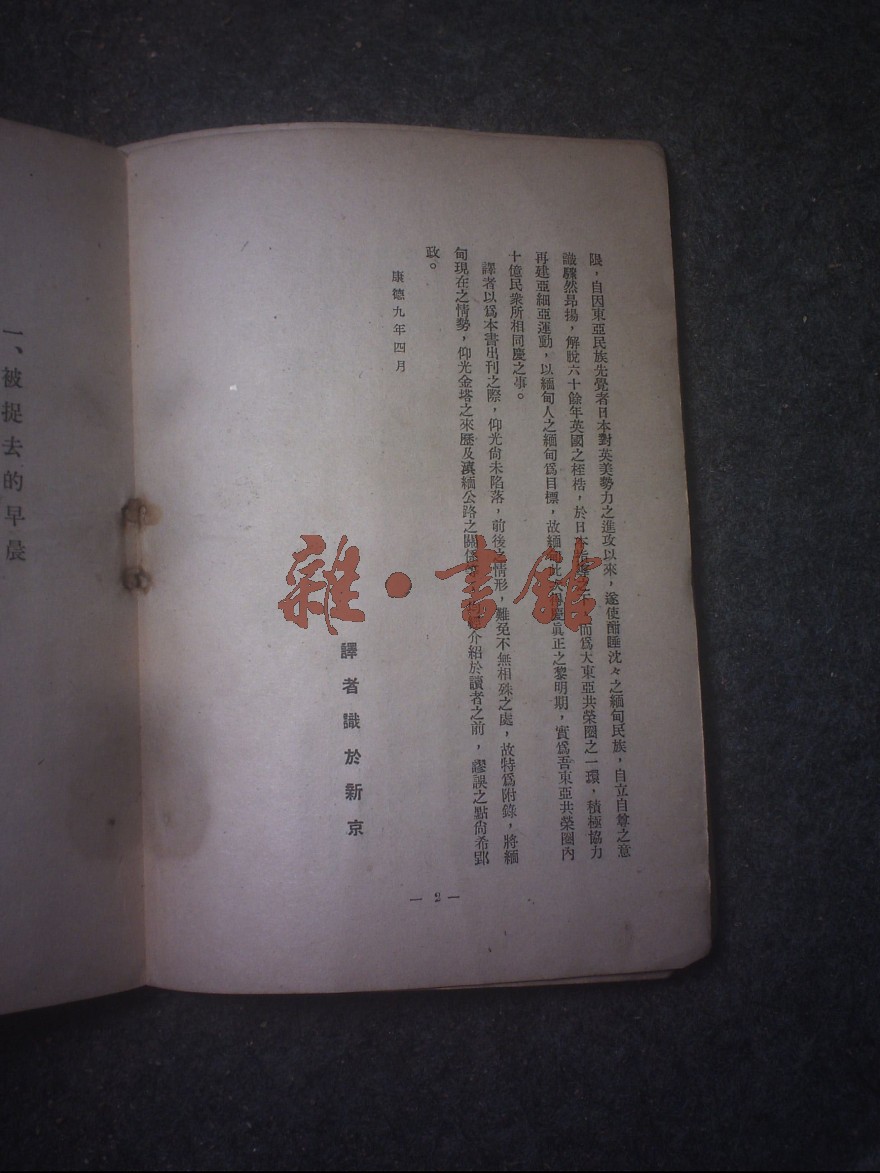 限，自因東亞民族先覺者日本對英美勢力之進攻以來，遂使酣睡沈々之緬甸民族，自立自尊之意
識驟然昻揚，解脫六十餘年英國之桎梏，於日本 而爲大東亞共榮圈之一環，積極協力
再建亞細亞運動，以緬甸人之緬甸爲目標，故緬甸 眞正之黎明期，實爲吾東亞共榮圈內
十億民衆所相同慶之事。
譯者以爲本書出刊之際，仰光尙未陷落，前後之情形，難免不無相殊之處，故特爲附錄，將緬
甸現在之情勢，仰光金塔之來歷及滇緬公路之關係 介紹於讀者之前，謬誤之點尙希郢
政。
康德九年四月
譯者識於新京
— 2 —
一、被捉去的早晨
雜·書館